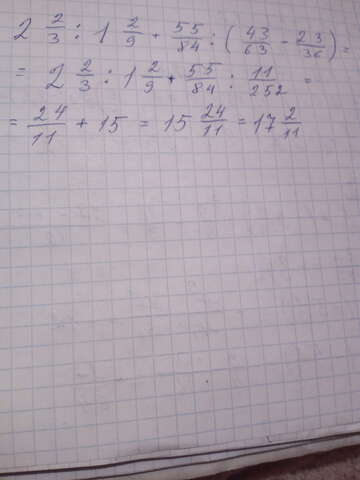 2 2/3 : 1 2/9 + 55/84 : (43/63 - 23/36) =
= 2 2/3 : 1 2/9 + 55/84 : 11/252 =
= 24/11 + 15 = 15 24/11 = 17 2/11